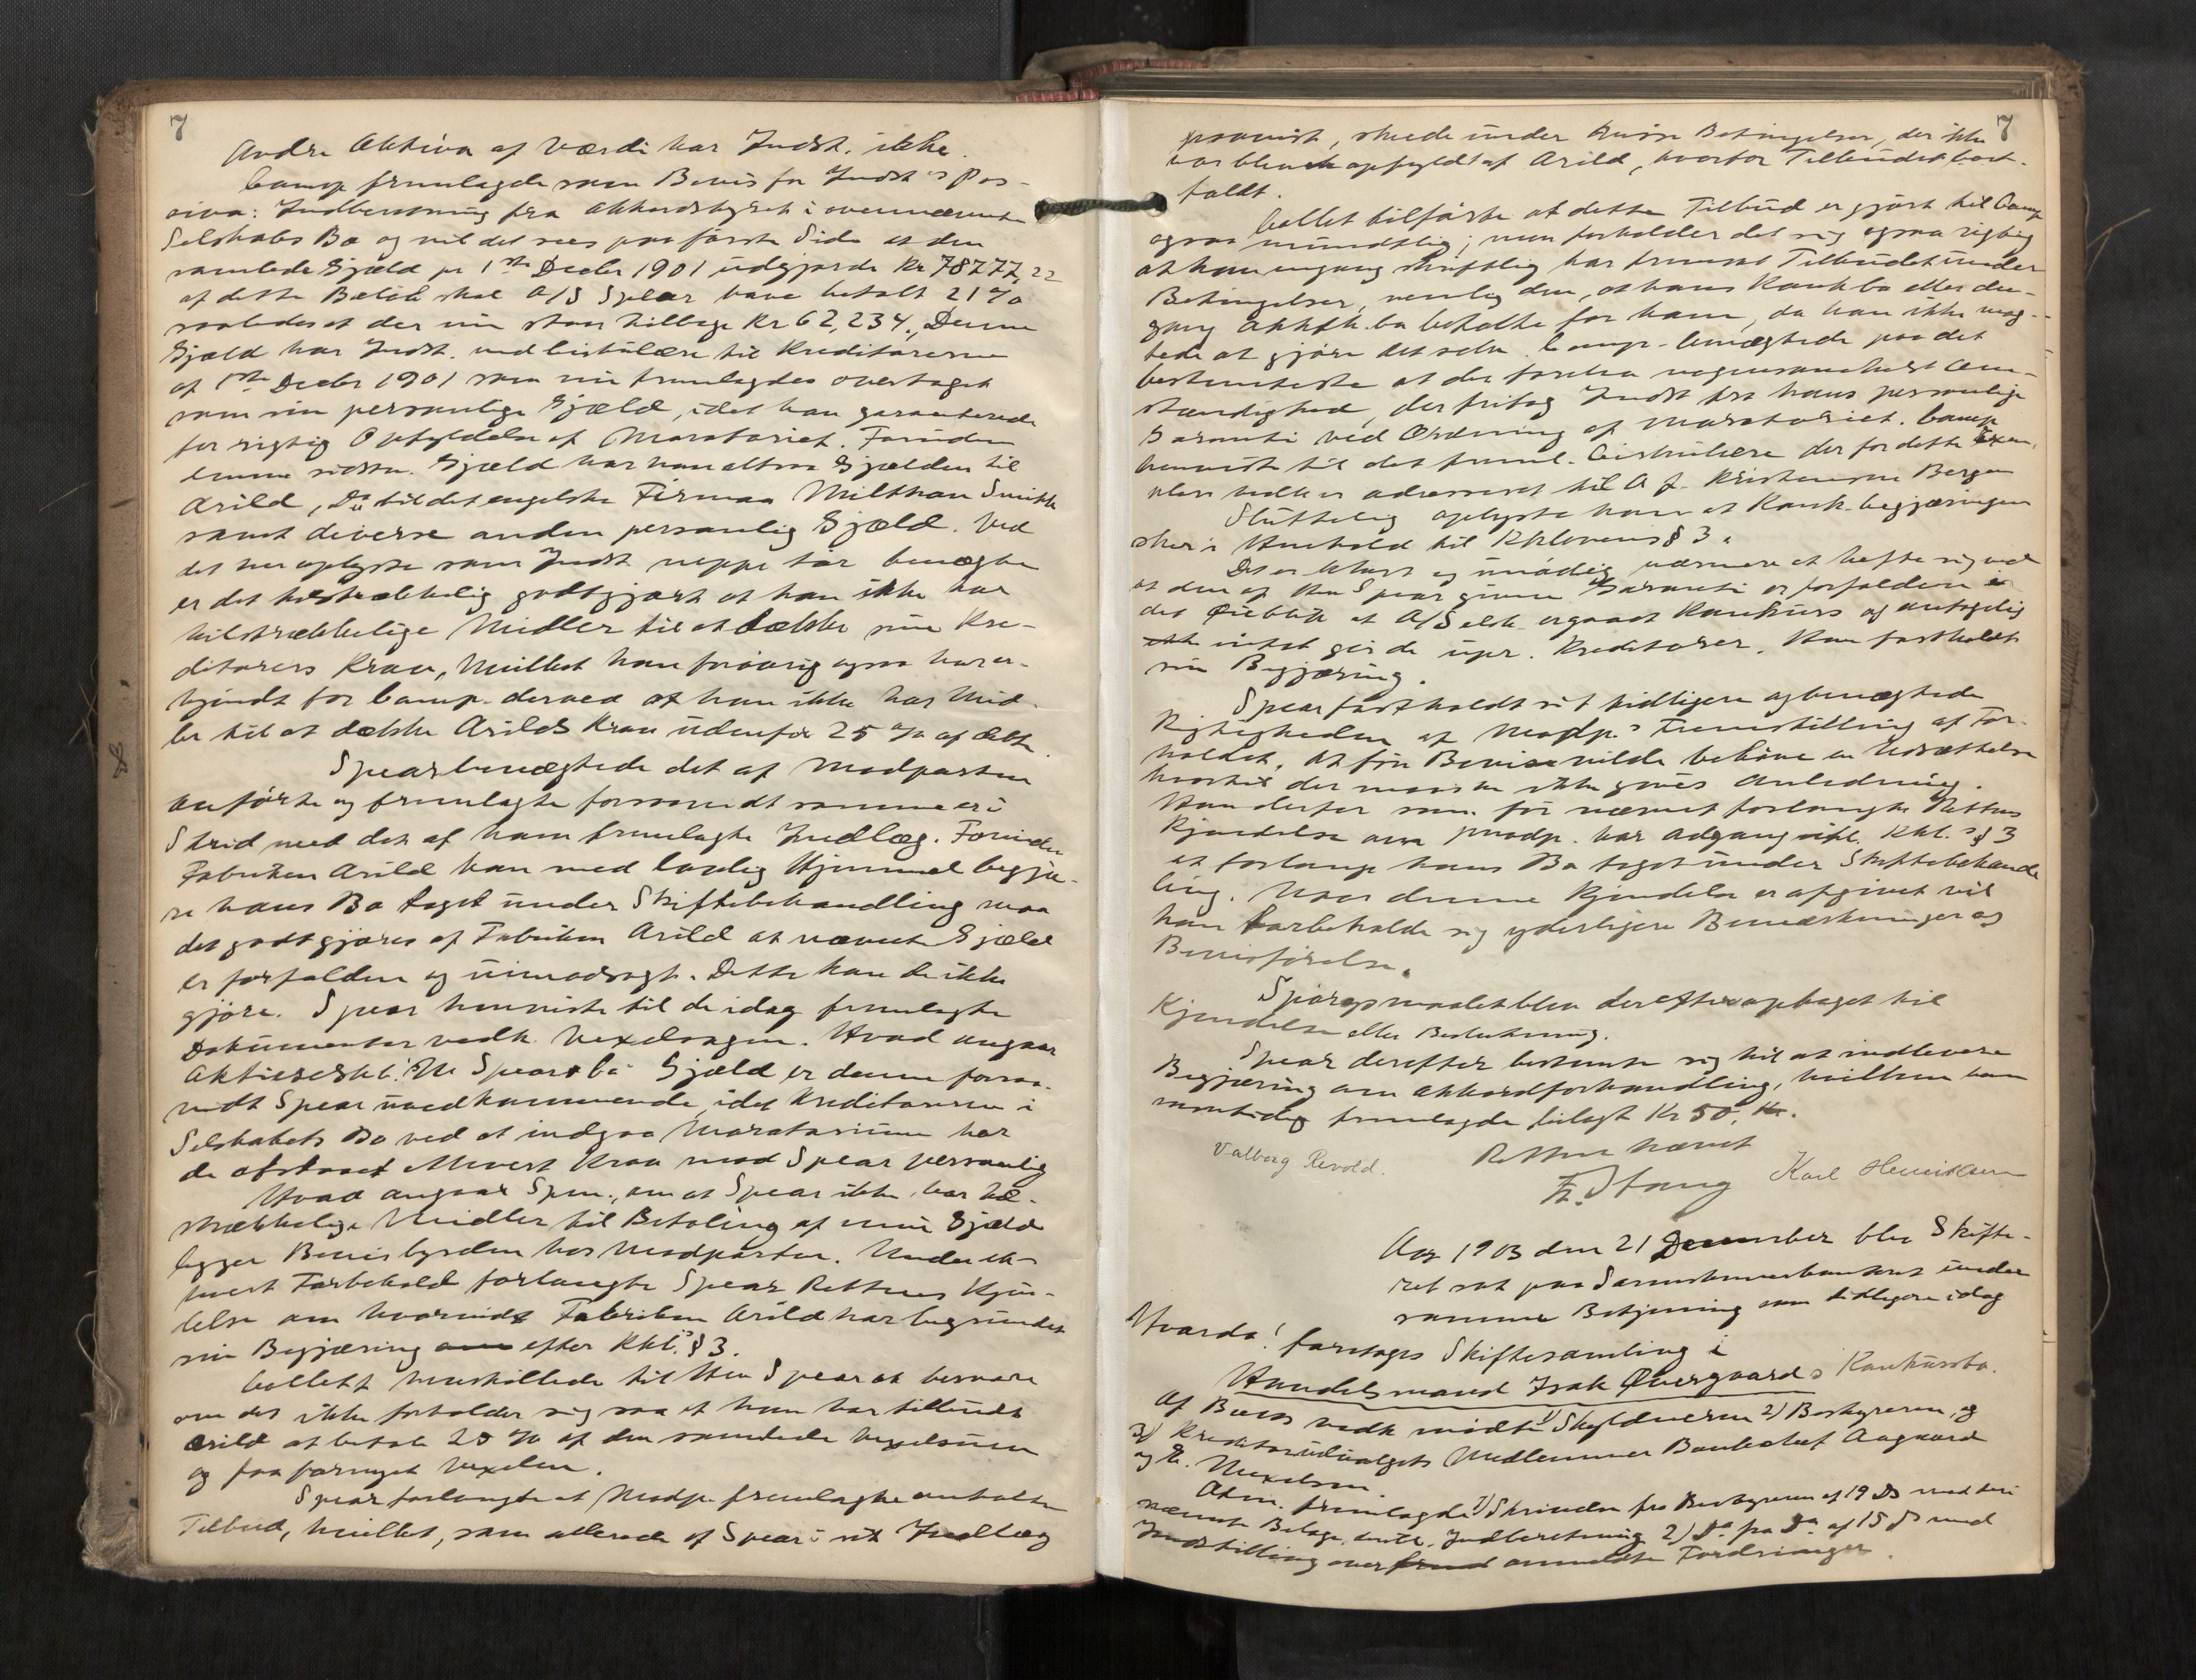 7
Andre Aktiva af Værdi har Indst. ikke.
Camp fremlagde som Bevis for Indst's Pas-
siva: Indberetning fra Akkordstyret i ovennævnte
Selskabs Bo og vil det sees paa første Side at den
samlede Gjæld pr 1ste Decbr 1901 udgjorde Kr 78777,22
af dette Beløb skal A/S Spear have betalt 21 %
saaledes at der nu staar tilbage Kr 62,234. Denne
Gjæld har Indst. ved Cirkulære til Kreditorerne
af 1ste Decbr 1901 som nu fremlagdes overtaget
som sin personlige Gjæld, idet han garanterede
for rigtig Opfyldelse af Moratoriet. Foruden
denne sidste Gjæld har han altsaa Gjælden til
Arild, Do til det engelske Firma Smith
samt diverse anden personlig Gjæld. Ved
det her oplyste som Indst neppe tør benægte
er det tilstrækkelig godtgjort at han ikke har
tilstrækkelige Midler til at dække sine Kre-
ditorers Krav, hvilket han forøvrig ogsaa har er-
kjendt for Camp. derved at han ikke har Mid-
ler til at dække Arilds Krav udenfor 25 % af dette.
Spear benægtede det af Modparten
anførte og fremlagte forsaavidt samme er i
Strid med det af ham fremlagte Indlæg. Forinden
Fabriken Arild kan med lovlig Hjemmel begjæ-
re hans Bo taget under Skiftebehandling maa
det godtgjøres af Fabriken Arild at nævnte Gjæld
er forfalden og uimodsagt. Dette kan de ikke
gjøre. Spear henviste til de idag fremlagte
Dokumenter vedk. Vexelsagen. Hvad angaar
Aktieselsk. Hr Spear & Co's Gjæld er denne forsaa-
vidt Spear uvedkommende, idet Kreditorerne i
Selskabets Bo ved at indgaa Moratorium har
de afstaaet ethvert Krav mod Spear personlig
Hvad angaar Spm., om at Spear ikke har til-
strækkelige Midler til Betaling af sin Gjæld
ligger Bevisbyrden hos Modparten. Under et-
hvert Forbehold forlangte Spear Rettens Kjen-
delse om hvorvidt Fabriken Arild har begrundet
sin Begjæring om efter Kkl.'s § 3.
Collett henstillede til Hr Spear at besvare
om det ikke forholder sig saa at han har tilbudt
Arild at betale 25 % af den samlede Vexelsum
og faa fornyet Vexelen.
Spear forlangte at Modp. fremlagte omtalte
Tilbud, hvilket, som allerede af Spear i sit Indlæg
7
skeede under visse Betingelser, der ikke
var blevet opfyldt af Arild, hvorfor Tilbudet bort-
faldt.
Collet tilførte at dette Tilbud er gjort til Camp
ogsaa mundtlig; men forholder det sig ogsaa rigtig
at han engang skriftlig har fremsat Tilbudet under
Betingelser, nemlig den, at hans Konkbo eller den-
gang Akkdk.bo betalte for ham, da han ikke mag-
tede at gjøre det selv. Camp. benægtede paa det
bestemteste at der forelaa nogensomhelst Om-
stændighed, der fritog Indst fra hans personlige
Garanti ved Ordning af Moratoriet. Camp
henviste til det freml. Cirkulære der for dette Exem-
plars vedk er adresseret til A J. Kristensen Bergen
Sluttelig oplyste han at Konk.begjæringen
sker i Henhold til Kklovens § 3.
Det er klart og unødig nærmere at hefte sig ved
at den af Hr Spear givne Garanti er forfalden i
det Øieblik at A/Selsk. ergaaet Konkurs og antagelig
ikke intet gir de upr. Kreditorer. Han fastholdt
sin Begjæring.
Spear fastholdt sit tidligere og benægtede
Rigtigheden af Modp's Fremstilling af For-
holdet. At føre Bevis vilde behøve en Udsættelse
hvortil der maaske ikke gives Anledning.
Han derfor som før nævnt forlangte Rettens
Kjendelse om Modp. har Adgang ifl. Kkl.'s § 3
at forlange hans Bo taget under Skiftebehand-
ling. Naar denne Kjendelse er afgivet vil
han forbeholde sig yderligere Bemærkninger og
Bevisførelse.
Spørgsmaalet blev derefter optaget til
Kjendelse eller Beslutning.
Spear derefter bestemte sig til at indlevere
Begjæring om Akkordforhandling, hvilken han
samtidig fremlagde bilagt Kr 50, Kr.
Retten hævet
Valborg Revold.
Fr. Stang
Karl Henriksen
Aar 1903 den 21 December blev Skifte-
ret sat paa Sorenskriverkontoret under
samme Betjening som tidligere idag
Hvorda!
foretoges Skiftesamling i
Handelsmand Isak Øvergaard's Konkursbo.
Af Boets vedk mødte 1) Skyldneren 2) Bestyreren, og
3) Kreditorudvalgets Medlemmer Bankchef Aagaard
og E.
Adm. fremlagde 1) Skrivelse fra Bestyreren af 19 Ds med deri
nævnte Bilage, Indberetning 2) Do fra Do af 15 Ds med
Indstilling over anmeldte Fordringer.